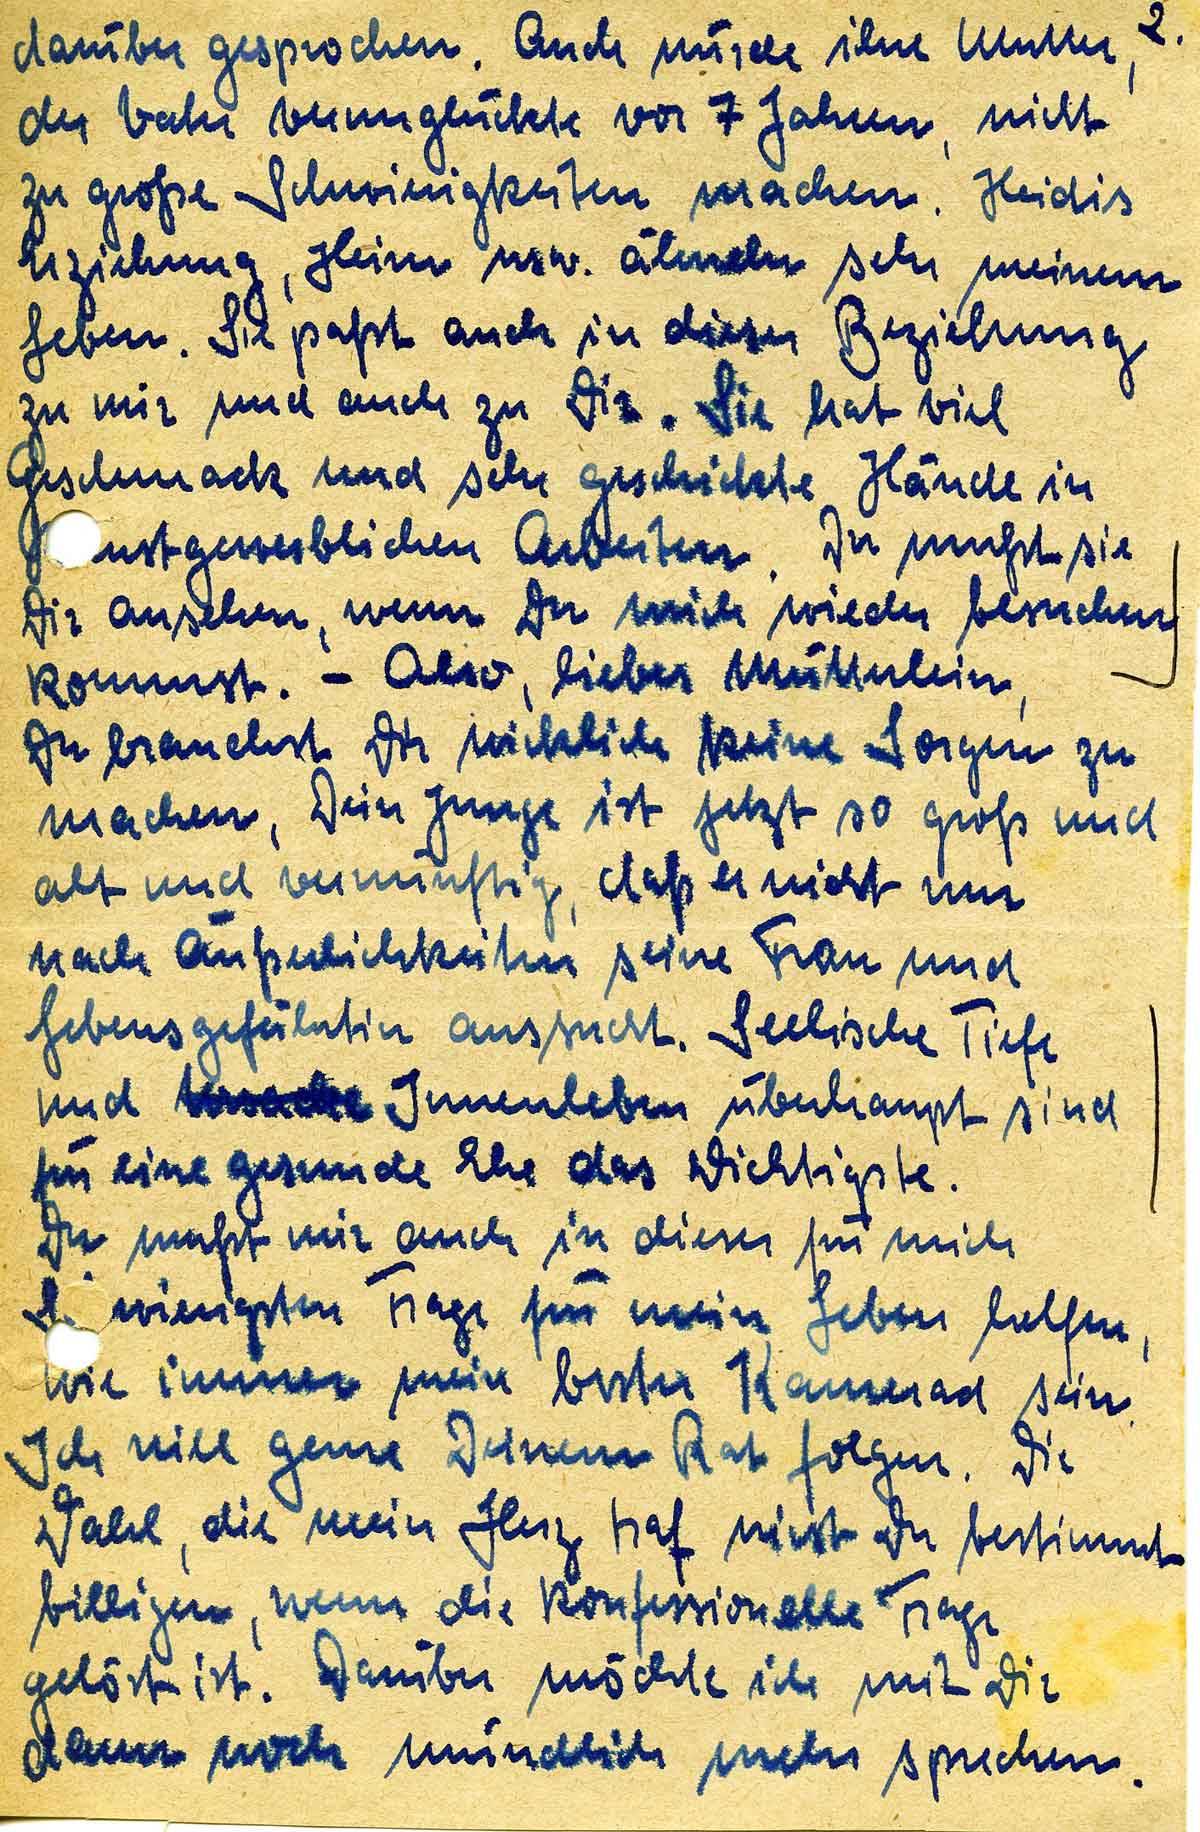 2.
darüber gesprochen. Auch würde ihre Mutter,
der Vater verunglückte vor 7 Jahren, nicht
zu große Schwierigkeiten machen. Heidis
Erziehung, Heim usw. ähneln sehr meinem
Leben. Sie paßt auch in dieser Beziehung
zu mir und auch zu Dir. Sie hat viel
Geschmack und sehr geschickte Hände in
unstgewerblichen Arbeiten. Du mußt sie
Dir ansehen, wenn Du mich wieder besuchen
kommst. – Also, liebes Mütterlein,
Du brauchst Dir wirklich keine Sorgen zu
machen, Dein Junge ist jetzt so groß und
alt und vernünftig, daß er nicht nur
nach Äußerlichkeiten seine Frau und
Lebensgefährtin aussucht. Seelische Tiefe
und Innenleben überhaupt sind
für eine gesunde Ehe das Wichtigste.
Du mußt mir auch in dieser für mich
wierigsten Frage für mein Leben helfen,
wie immer mein bester Kamerad sein.
Ich will gerne Deinem Rat folgen. Die
Wahl, die mein Herz traf wirst Du bestimmt
billigen, wenn die konfessionelle Frage
gelöst ist. Darüber möchte ich mit Dir
dann noch mündlich mehr sprechen.